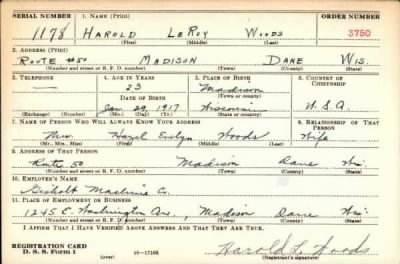 SERIAL NUMBER 1. NAME (Print) ORDER NUMBER
1178 HAROLD LEROY WOODS 3750
(First) (Middle) (Last)
2. ADDRESS (Print)
ROUTE #50 MADISON DANE WIS.
(Number and street or R. F. D. number) (Town) (County) (State)
3. TELEPHONE 4. AGE IN YEARS 5. PLACE OF BIRTH 6. COUNTRY OF CITIZENSHIP
— 23 Madison
(Town or county)
DATE OF BIRTH
Jan 29, 1917 Wisconsin U.S.A.
(Exchange) (Number) (Mo.) (Day) (Yr.) (State or country)
7. NAME OF PERSON WHO WILL ALWAYS KNOW YOUR ADDRESS 8. RELATIONSHIP OF THAT PERSON
Mrs. Hazel Evelyn Woods Wife
(Mr., Mrs., Miss) (First) (Middle) (Last)
9. ADDRESS OF THAT PERSON
Route 50 Madison Dane Wis.
(Number and street or R. F. D. number) (Town) (County) (State)
10. EMPLOYER'S NAME
Gisholt Machine C.
11. PLACE OF EMPLOYMENT OR BUSINESS
1245 E. Washington Ave., Madison Dane Wis.
(Number and street or R. F. D. number) (Town) (County) (State)
I AFFIRM THAT I HAVE VERIFIED ABOVE ANSWERS AND THAT THEY ARE TRUE.
REGISTRATION CARD
D. S. S. Form 1 (over) 16—17105 Harold L. Woods
(Registrant's signature)